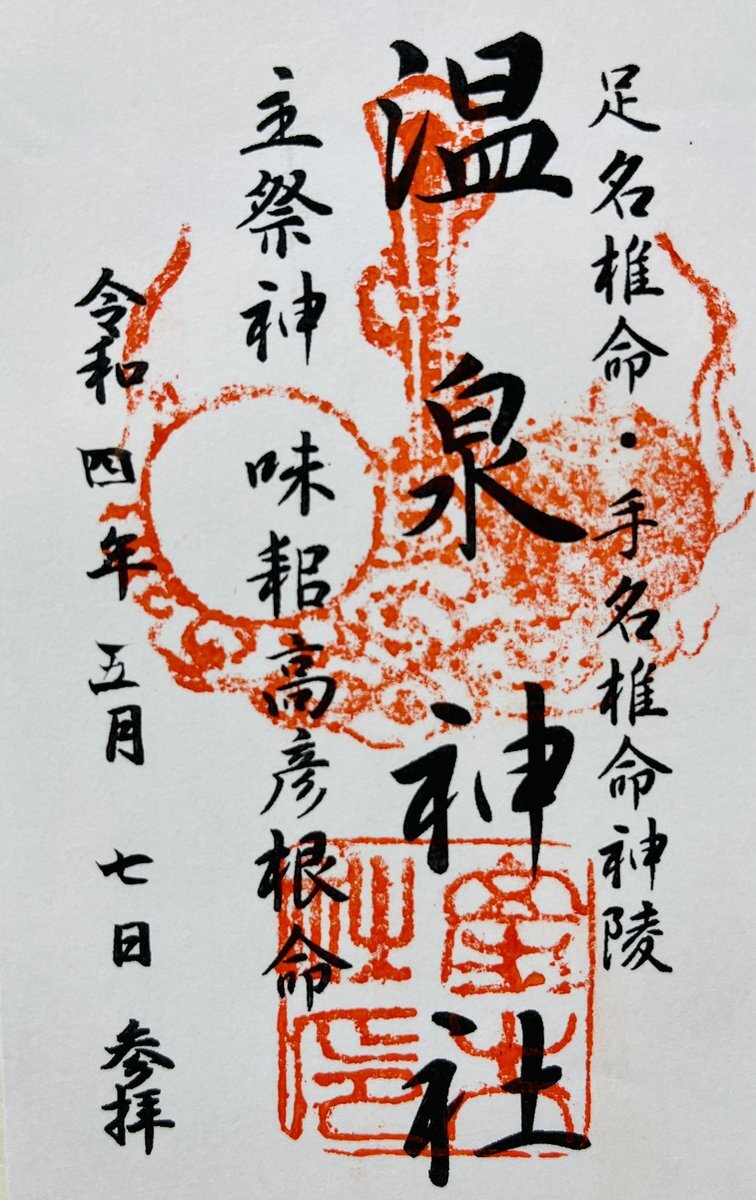 足名椎命・手名椎命神陵
温泉神社
主祭神 味耜高彦根命
令和四年五月七日参拝